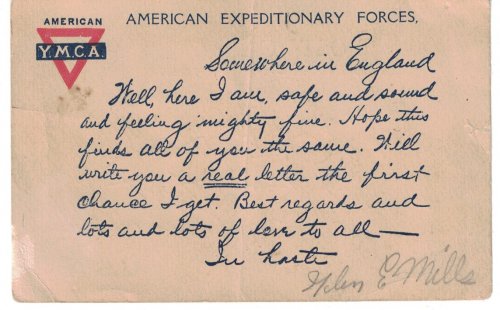 AMERICAN
Y.M.C.A.
AMERICAN EXPEDITIONARY FORCES,
Somewhere in England
Well, here I am, safe and sound
and feeling mighty fine. Hope this
finds all of you the same. Will
write you a real letter the first
chance I get. Best regards and
lots and lots of love to all—
In haste
E Mills